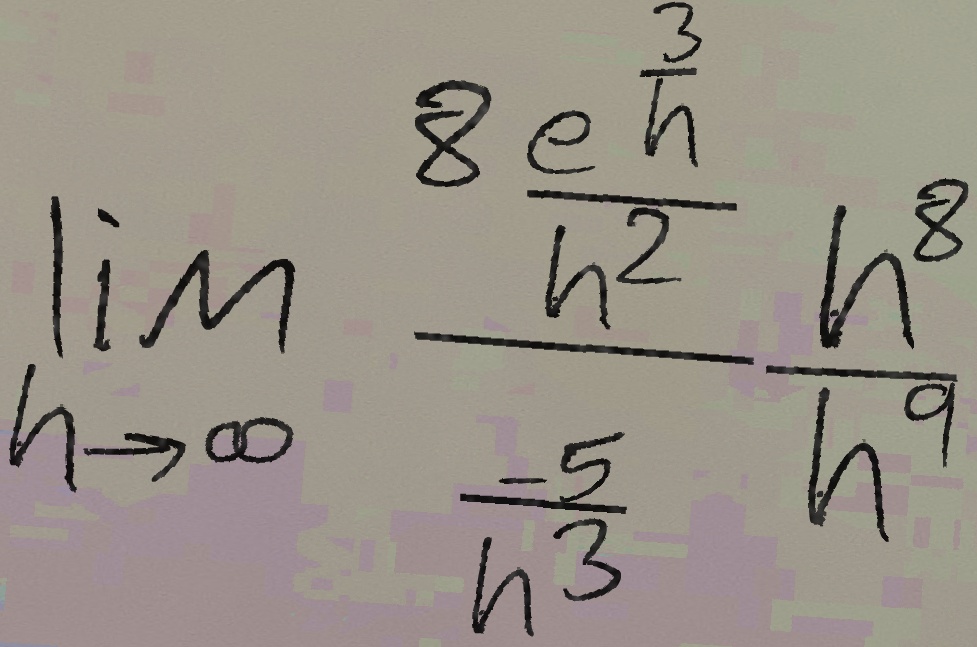 \lim_{h \to \infty} \frac{8 \frac{e^{\frac{3}{h}}}{h^2}}{\frac{-5}{h^3}} \frac{h^8}{h^9}